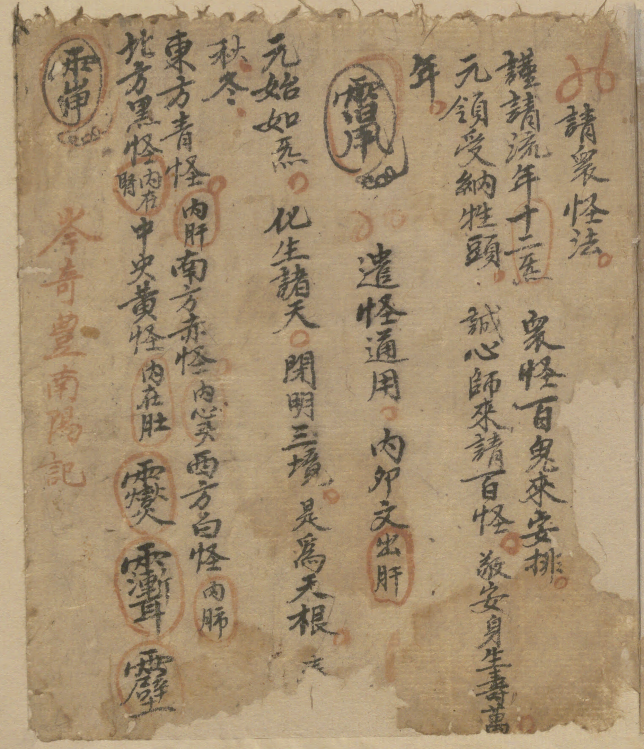 請衆怪法
謹請流年十二炁 衆怪百鬼來安排
元領受納牲頭 誠心師來請百怪 敬安身生壽萬
年
遣怪通用 内卯文出肝
元始如炁 化生諸天 開明三境 是爲天根
秋冬
東方青怪内肝南方赤怪内心 西方白怪内肺
北方黑怪内存腎中央黄怪内在肚
岑奇豊南陽記